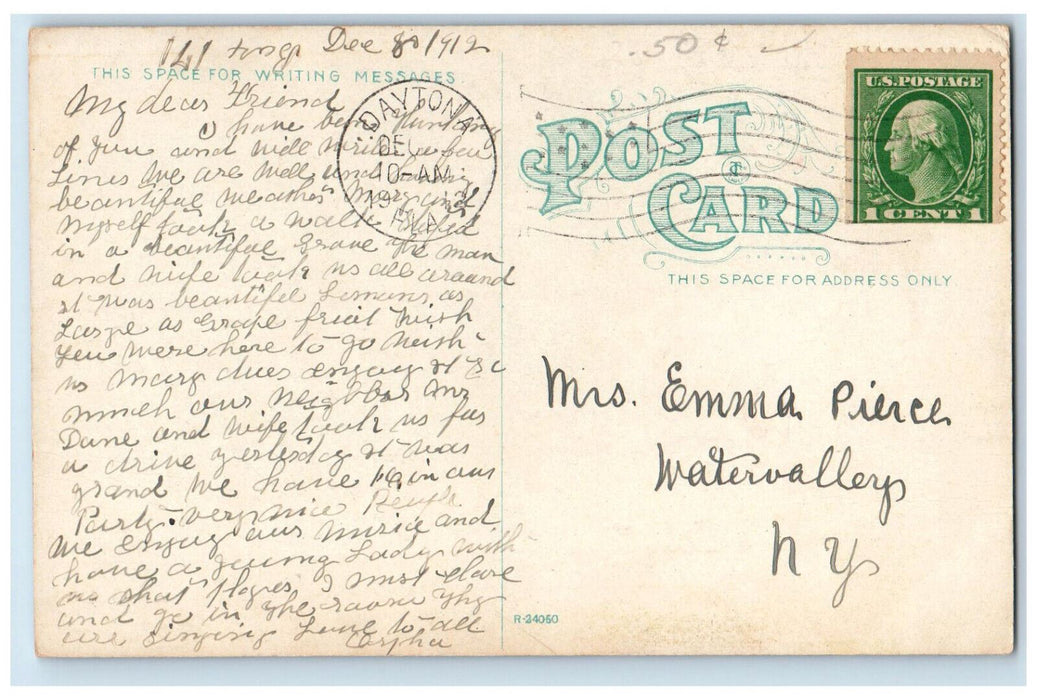 Dec 8 1912
.50 ¢
THIS SPACE FOR WRITING MESSAGES
My dear Friend
I have been thinking
of you and will write a few
Lines We are Well and
beautiful Weather Mary and
Myself took a walk
in a beautiful Grove the man
and wife took us all around
it was beautiful Lemons as
Large as Grape fruit Wish
you were here to go with
us Mary dues enjoy it so
much our Neighbor Mr
Dane and wife took us for
a drive yesterday it was
grand We have 19 in our
Party. very nice People
We enjoy our Music and
have a young Lady with
us that plays I must close
and go in the room they
are singing Love to all
DAYTONA
DEC
10-AM
1912
FLA.
POST
CARD
U.S. POSTAGE
1 CENT 1
THIS SPACE FOR ADDRESS ONLY.
Mrs. Emma Pierce
Watervalley
N Y
R-24050